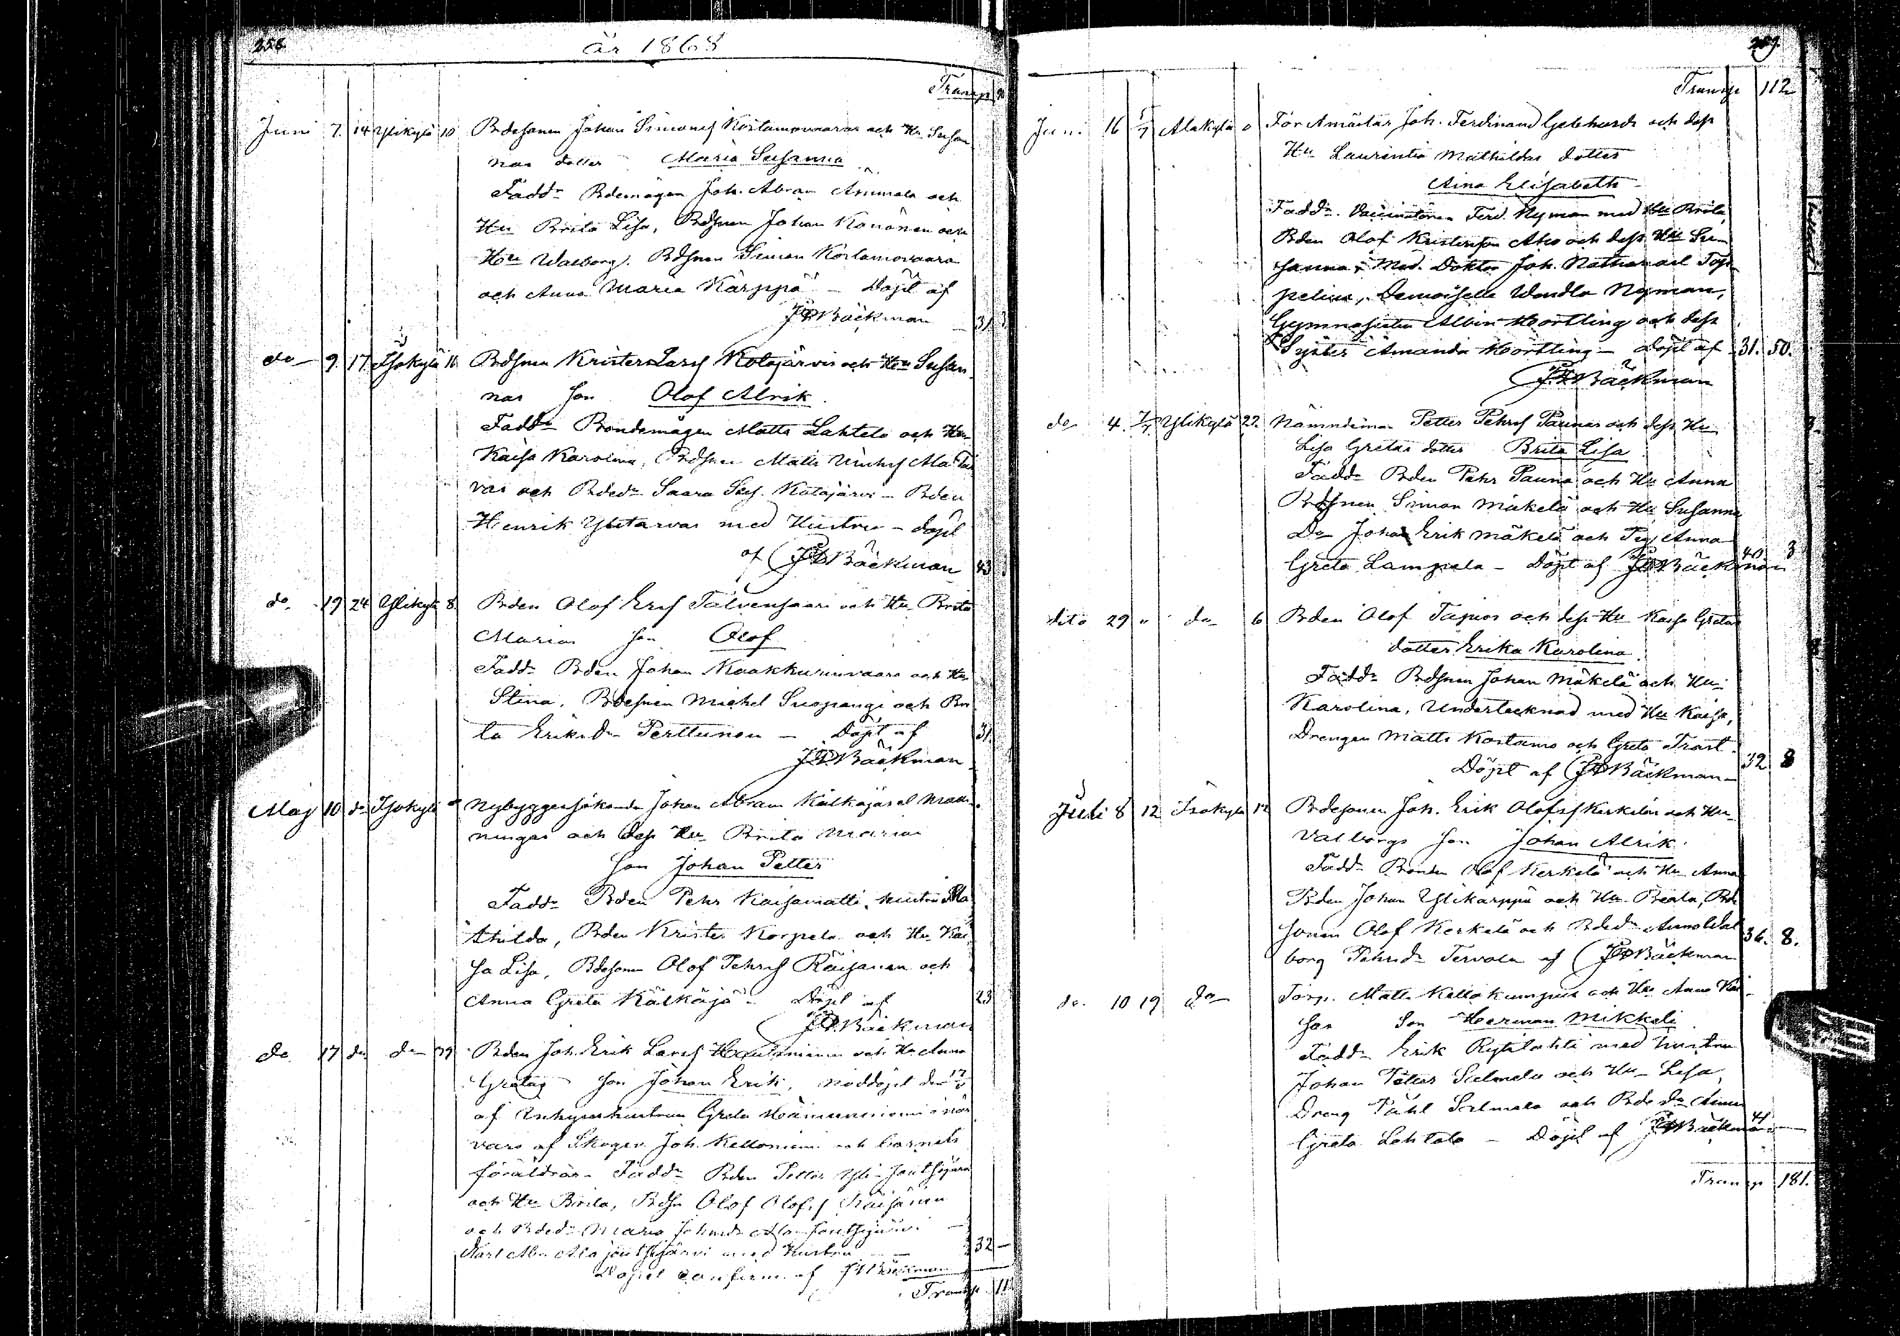 258.
år 1868
Transp
Juni 7. 14 Ylikylä 10 Bdesonen Johan Simons Korlamovaaras och Hu Susan
nas dotter Maria Susanna
Fadd. Bdemågen Joh. Abram Ahumala och
Hu Brita Lisa, Bdsnen Johan Kononen och
Hu Walborg. Bdsnen Simon Korlamovaara
och Anna Maria Kärppä – Döpt af
JFBäckman 31
do 9. 17. Isokylä 16 Bdsnen Krister Larss Kotajärvis och Hu Susan
nas son Olof Alrik.
Fadd. Bondemågen Matts Lahtela och Hu
Kaisa Karolina, Bdsnen Matts Ala Tar
vas och Bded. Saara Kotajärvi – Bden
Henrik Ylitarvas med Hustru – döpt
af JFBäckman 43
do. 19 24 Ylikylä 8 Bden Olof Ers Talvensaari och Hu Brita
Marias son Olof
Fadd. Bden Johan Kaakkurivaara och Hu
Stina, Bdesonen Michel Suopangi och Bri
ta Eriksdr Perttunen – Döpt af 31
JFBäckman
Maj 10 do Isokylä Nybyggessökande Johan Abram Kälkäjäs el. Man
ningas och dess Hu Brita Marias
son Johan Petter
Fadd. Bden Pehr Kaisamatti, hustru Ma
thilda, Bden Krister Korpela och Hu Kai
sa Lisa, Bdesonen Olof Pehrss Räisänen och
Anna Greta Kälkäjä – Döpt af 23
JFBäckman
do 17 do do 39 Bden Joh. Erik Larss och Hu Anna
Gretas son Johan Erik, nöddöpt den 17/5
af Enkehustrun Greta i när
varo af Skogv. Joh. Kelloniemi och barnets
föräldrar. Fadd. Bden Petter Yli-Joutsijärvi
och Hu Brita, Bdsn Olof Olofss Räisänen
och Bded. Maria Johansdr Ala-Joutsijärvi
Karl Abr. Alajoutsijärvi med Hustru 32
Döpel confirm. af JFBäckman
Transp 112
259.
Transp 112
Juni 16 5/7 Alakylä 0 Förvaltar Joh. Ferdinand Gebhards och dess
Hu Laurentia Mathildas dotter
Aina Elisabeth
Fadd. Vaccinatören Ferd. Nyman med Hu Brita,
Bden Olof Kristersson Aho och dess Hu Su
sanna, Med. Doktor Joh. Nathanael Top
pelius, Demoiselle Wendla Nyman,
Gymnasisten Albin Hortling och dess
Syster Amanda Hortling – Döpt af 31. 50.
JFBäckman
do 4. 7/7 Ylikylä 22. Nämndeman Petter Pehrss Paunas och dess Hu
Lisa Gretas dotter Brita Lisa
Fadd. Bden Pehr Pauna och Hu Anna
Bdsnen Simon Mäkelä och Hu Susanna
Do Johan Erik Mäkelä och Pig. Anna
Greta Lampela – Döpt af JFBäckman 40. 3
dito 29 " do 6 Bden Olof Tapios och dess Hu Kaisa Gretas
dotter Erika Karolina.
Fadd. Bdsnen Johan Mäkelä och Hu
Karolina, Undertecknad med Hu Kaisa,
Drengen Matts Kostamo och Greta Trast.
Döpt af JFBäckman 32 8
Juli 8 12 Isokylä 12 Bdesonen Joh. Erik Olofss Kerkelä och Hu
Valborgs son Johan Alrik.
Fadd. Bonden Olof Kerkelä och Hu Anna
Bden Johan Ylikärppä och Hu Beata, Bde
sonen Olof Kerkelä och Bded. Anna Wal
borg Pehrsdr Tervola af JFBäckman 36. 8.
do. 10 19 do Torp. Matts Kellokumpus och Hu Anna Kai
sas son Herman Mikkeli
Fadd. Erik Ryttilahti med hustru
Johan Petter Salmela och Hu Lisa,
Dreng Påhl Salmela och Bdedr Anna
Greta Lahtela – Döpt af JFBäckman 41
Transp 181.